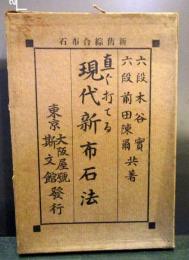 新舊綜合布石
六段 木谷實
六段 前田陳爾 共著
直ぐ打てる
現代新布石法
東京 大阪屋號
斯文館發行